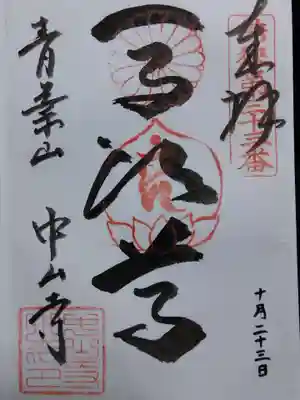 奉拝
十月二十三日
馬頭尊
青葉山 中山寺